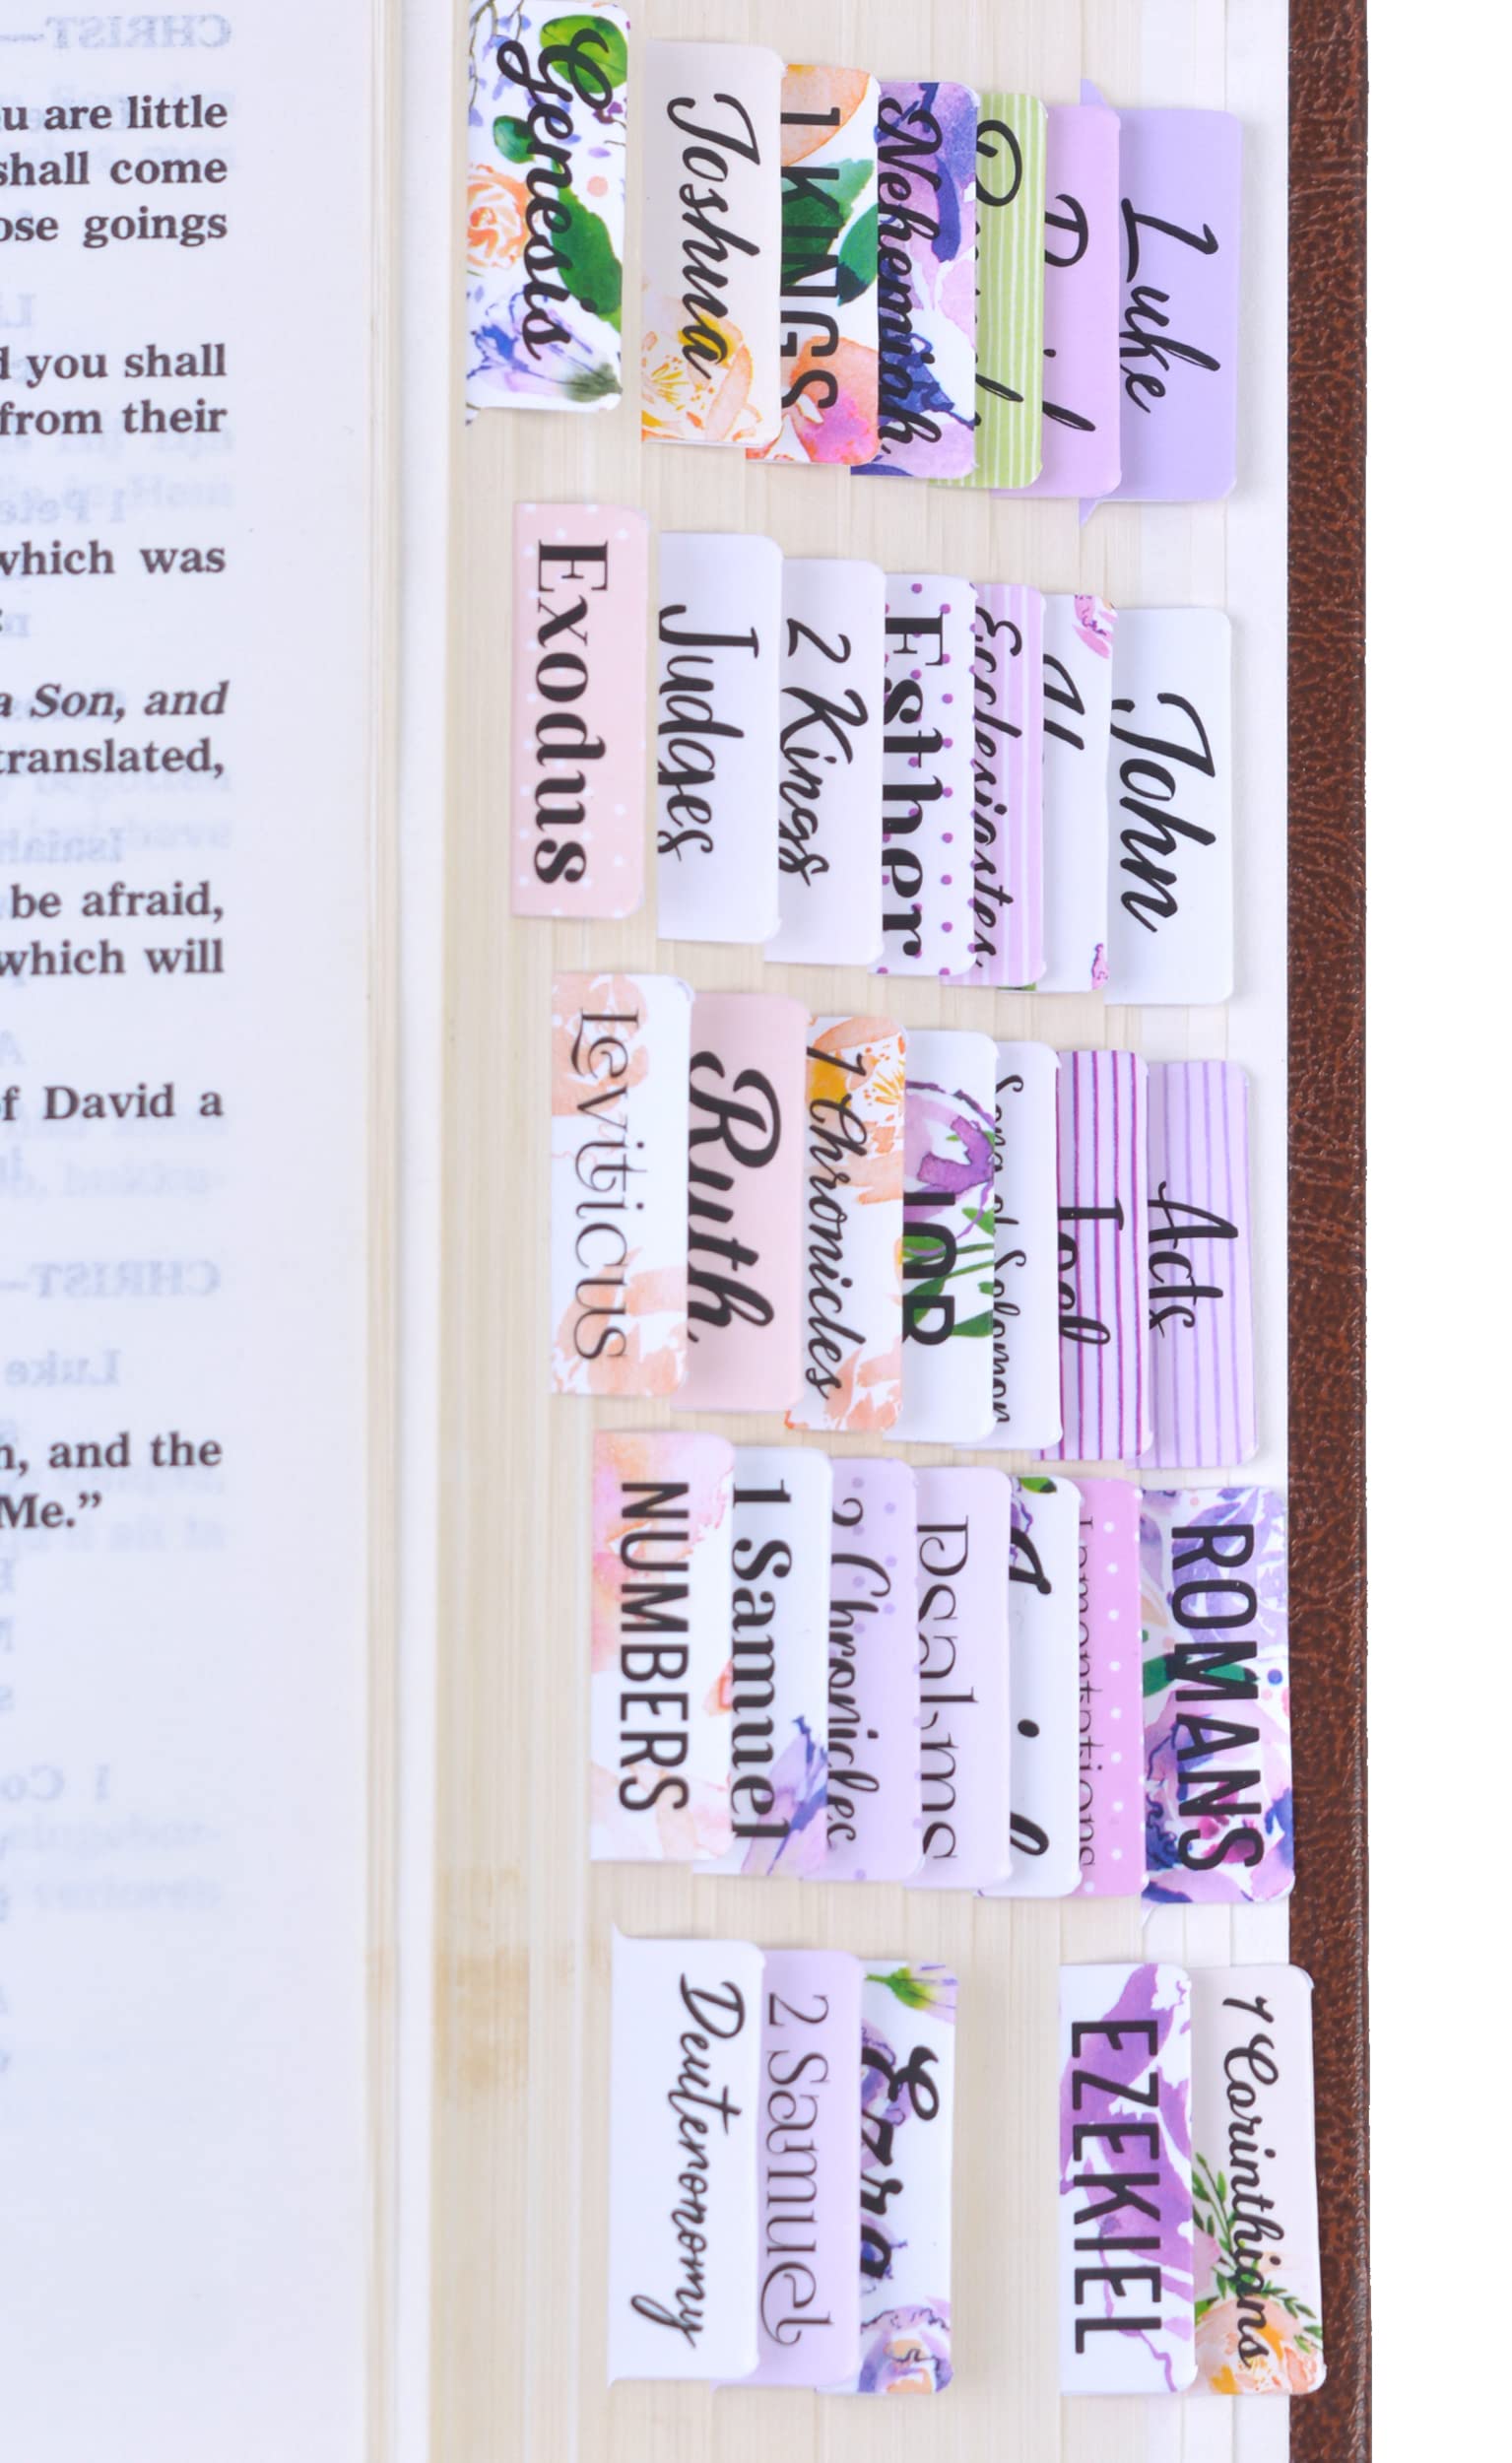 u are little
shall come
ose goings
d you shall
from their
which was
a Son, and
translated,
be afraid,
which will
of David a
n, and the
Me.”
CHRIST—
CHRIST—
Luke
Genesis
Joshua
1 KINGS
Nehemiah
Luke
Exodus
Judges
2 Kings
Esther
Ecclesiastes
John
Leviticus
Ruth
1 Chronicles
JOB
Song of Solomon
Joel
Acts
NUMBERS
1 Samuel
2 Chronicles
Psalms
Lamentations
ROMANS
Deuteronomy
2 Samuel
Ezra
EZEKIEL
1 Corinthians